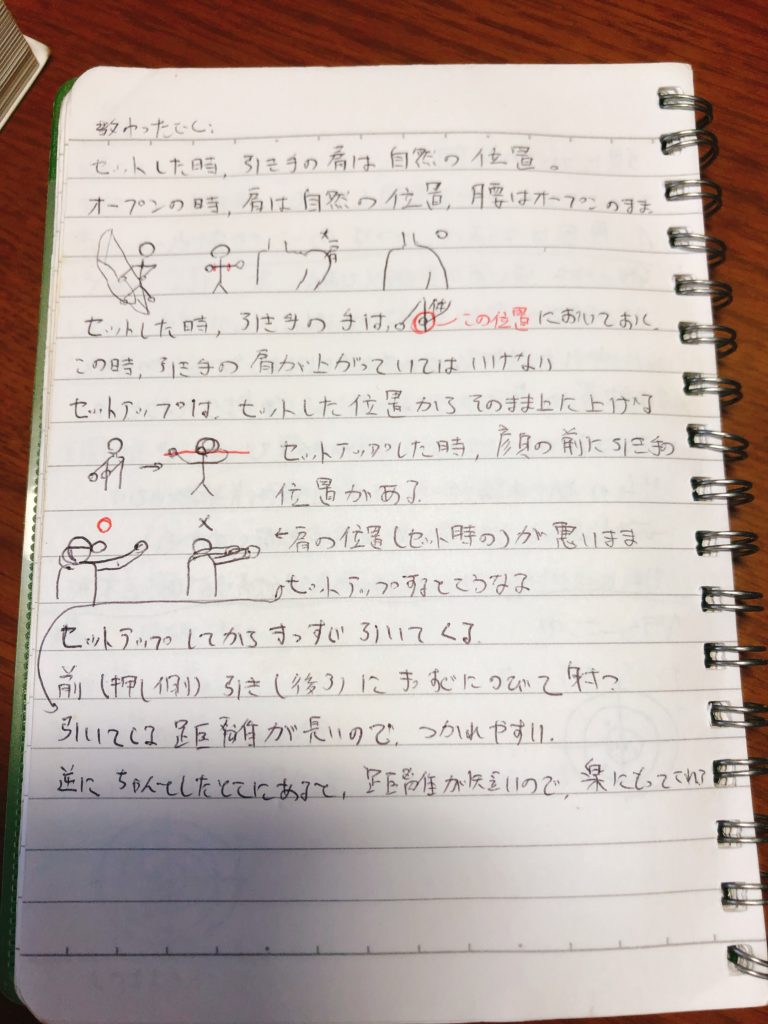 教わったこと:
セットした時、引き手の肩は自然の位置。
オープンの時、肩は自然の位置、腰はオープンのまま
× 肩 ○
セットした時、引き手の手は、この位置においておく、
体
この時、引き手の肩が上がっていてはいけない
セットアップは、セットした位置からそのまま上に上げる
→ セットアップした時、顔の前に引き手の
位置がある
○ × ←肩の位置(セット時の)が悪いまま
セットアップするとこうなる
セットアップしてからまっすぐ引いてくる
前(押し側)引き(後ろ)にまっすぐにのびて射つ
引いてくる距離が長いので、つかれやすい、
逆にちゃんとしたとこにあると、距離が短いので、楽にもってこれる